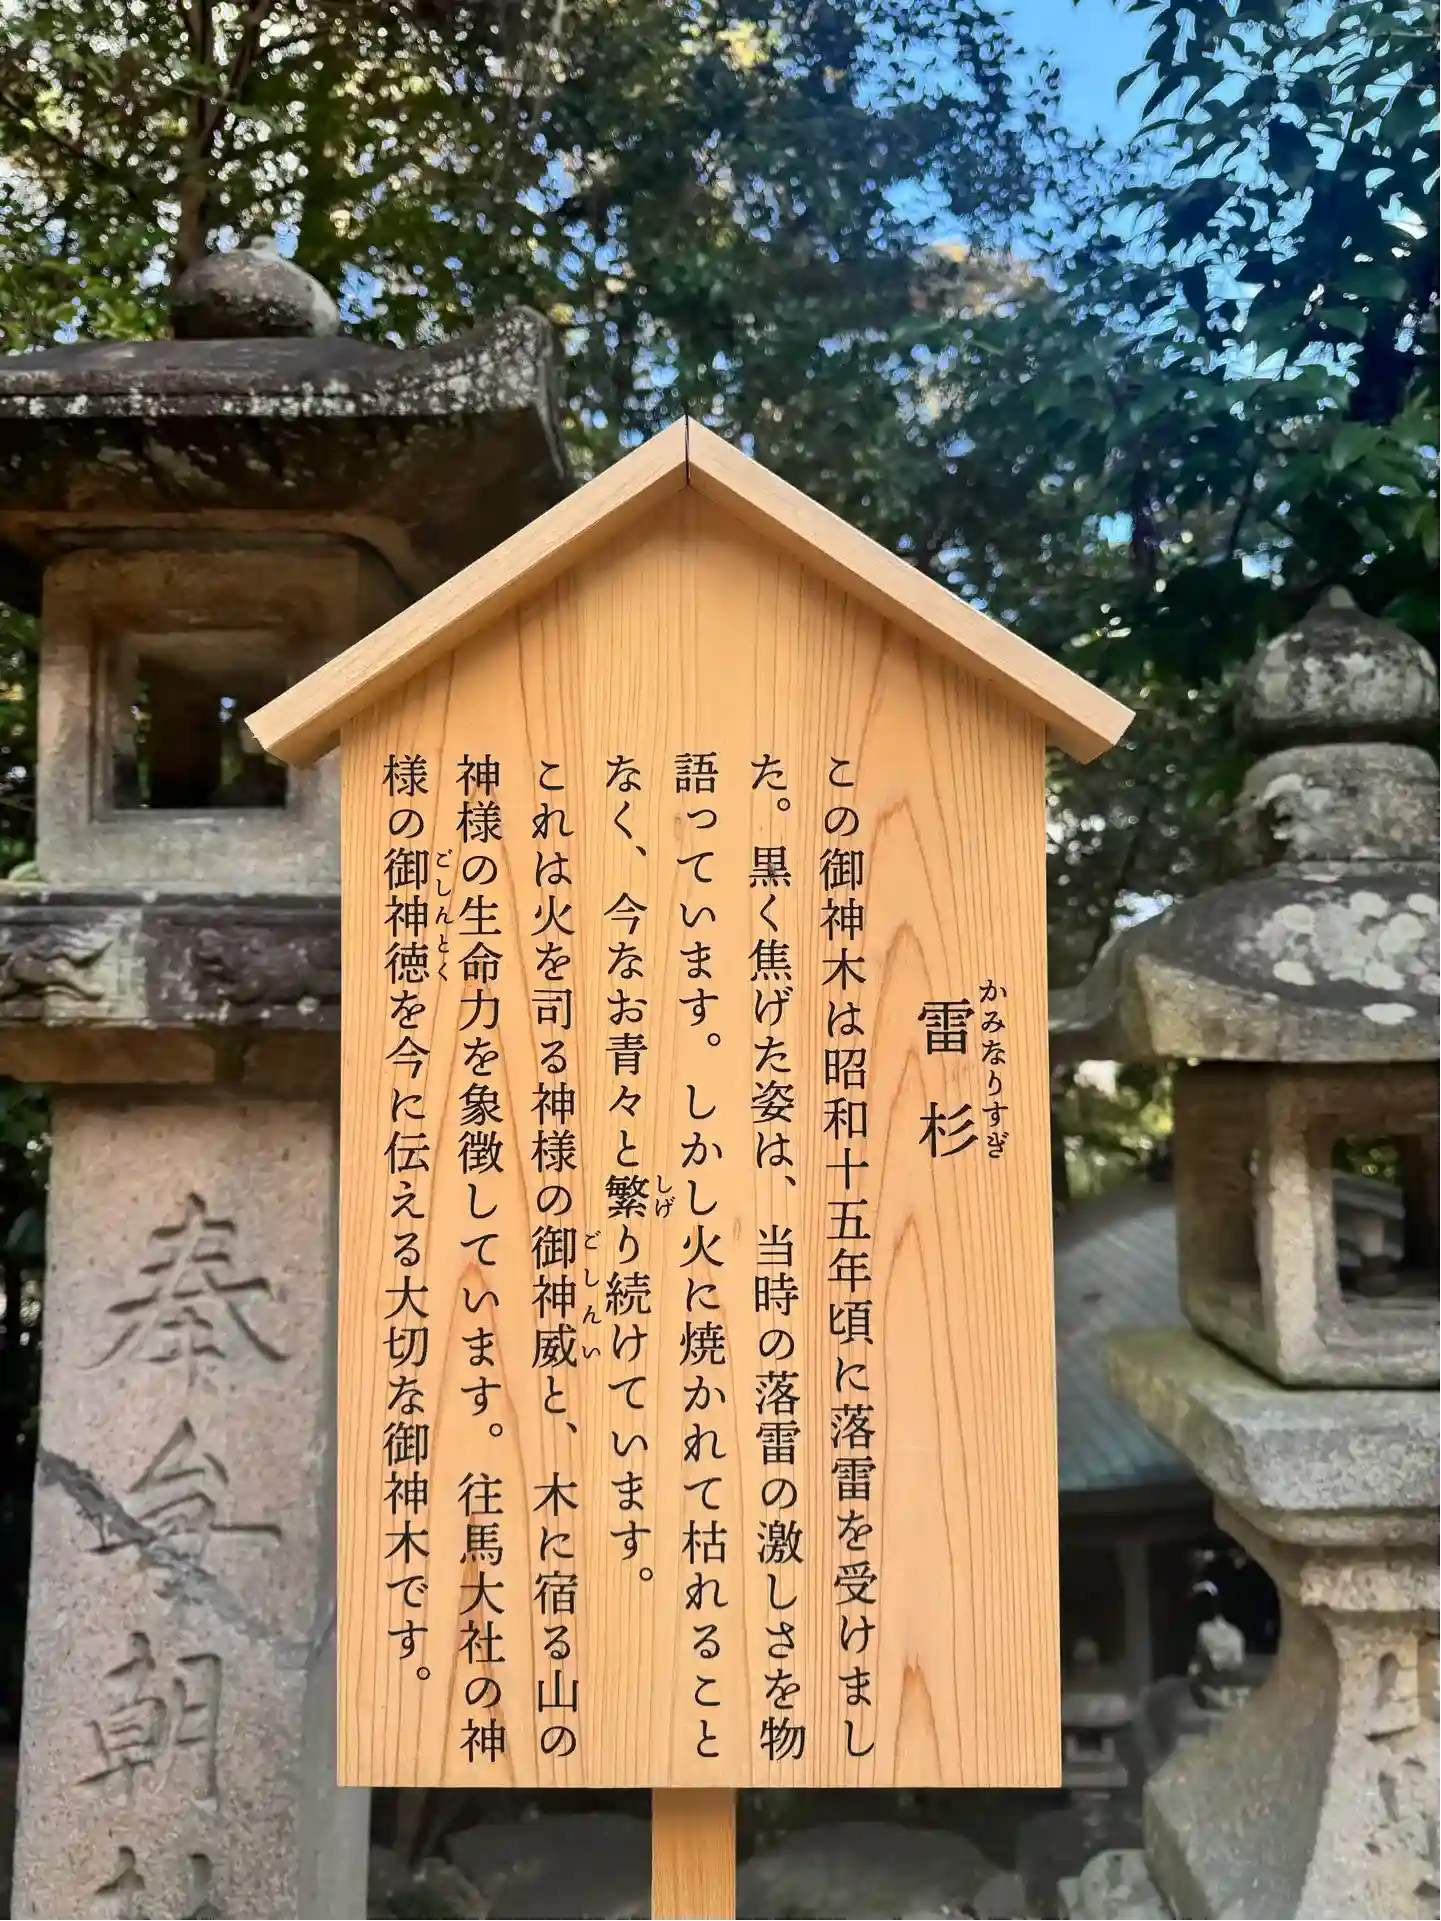 かみなりすぎ
雷杉
この御神木は昭和十五年頃に落雷を受けまし
た。黒く焦げた姿は、当時の落雷の激しさを物
語っています。しかし火に焼かれて枯れること
しげ
なく、今なお青々と繁り続けています。
ごしんい
これは火を司る神様の御神威と、木に宿る山の
神様の生命力を象徴しています。往馬大社の神
ごしんとく
様の御神徳を今に伝える大切な御神木です。
奉台朝